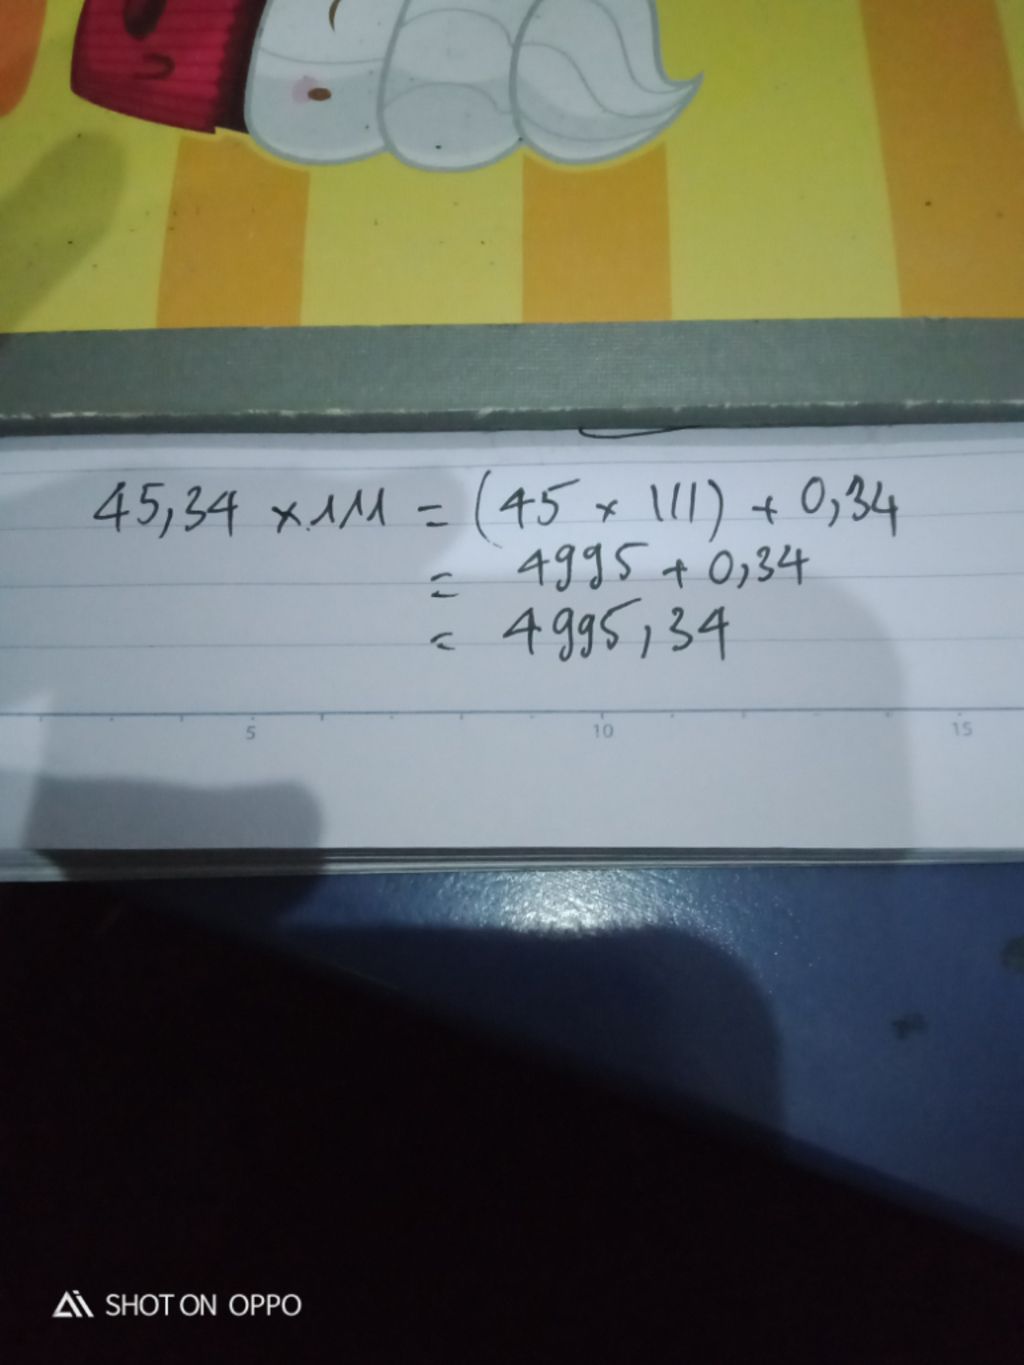 45,34 × 111 = (45 × 111) + 0,34
= 4995 + 0,34
= 4995,34
5 10 15
SHOT ON OPPO